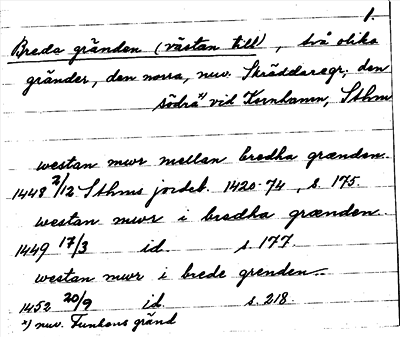 1.
Breda gränden (västan till), två olika
gränder, den norra, nuv. Skräddaregr., den
södra *) vid Kornhamn, Sthm
westan mwr mellan bredha grænden.
1448 2/12 Sthms jordeb. 1420-74, s. 175.
westan mwr i bredha grænden.
1449 17/3 id. s. 177.
westan mwr i brede grenden.
1452 20/9 id. s. 218.
*) nuv. Funkens gränd